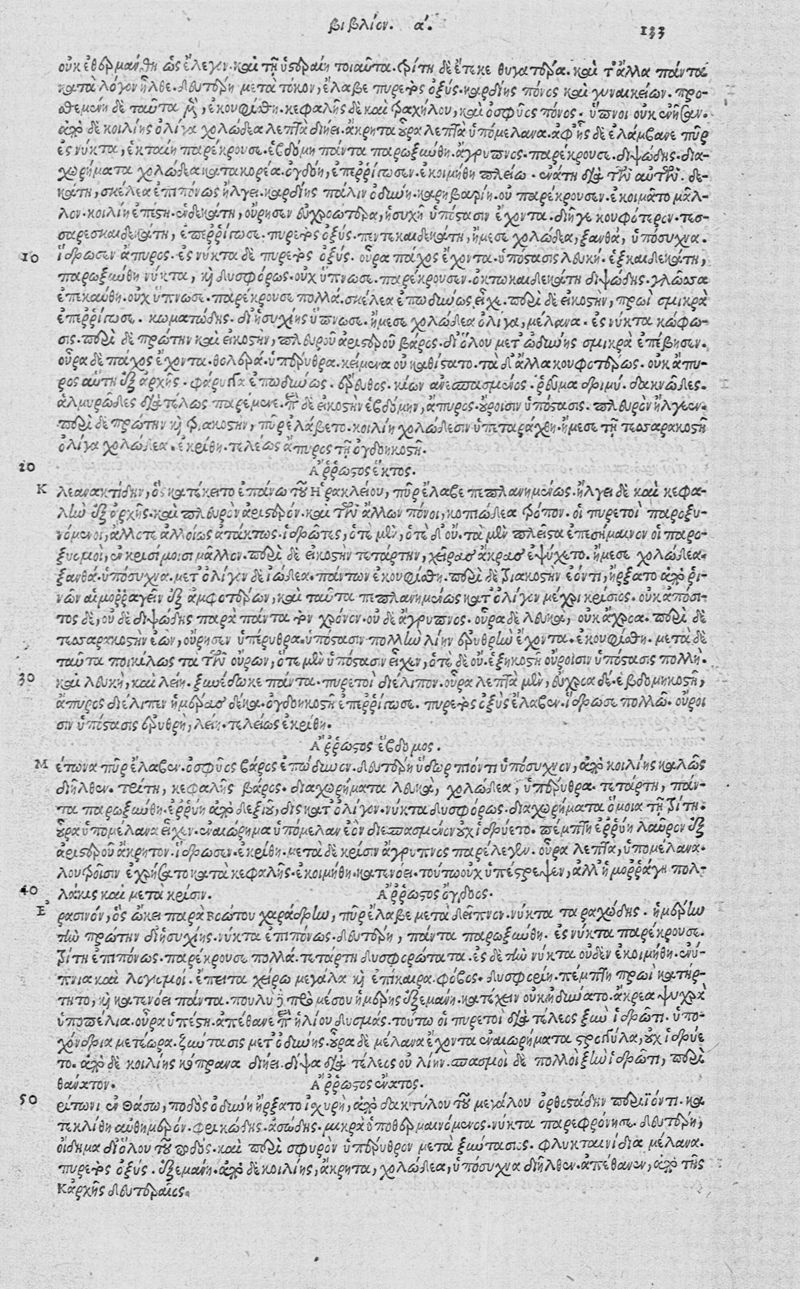 βιβλίον. α΄. 133
οὐκ ἐθερμάνθη ὡς ἔλεγον. καὶ τῇ ὑστεραίῃ τοιαῦτα. τρίτῃ δὲ ἔτεκε θυγατέρα. καὶ τἄλλα πάντα
κατὰ λόγον ἦλθε. δευτέρῃ μετὰ τόκον, ἔλαβε πυρετὸς ὀξύς. καρδίης πόνος καὶ γυναικείων. προσ-
θεμένῃ δὲ ταῦτα μὲν, ἐκουφίσθη. κεφαλῆς δὲ καὶ τραχήλου, καὶ ὀσφύος πόνος. ὕπνοι οὐκ ἐνῆσαν.
ἀπὸ δὲ κοιλίης ὀλίγα χολώδεα λεπτὰ διῄει. ἄκρητα. οὖρα λεπτὰ ὑπομέλανα. ἀφ' ἧς δὲ ἐλάμβανε πῦρ
ἐς νύκτα, ἑκταίη παρέκρουσε. ἑβδόμῃ πάντα παρωξύνθη. ἄγρυπνος. παρέκρουσε. διψώδης. δια-
χωρήματα χολώδεα κατακορέα. ὀγδόῃ, ἐπερρίγωσεν. ἐκοιμήθη πλείω. ἐνάτῃ διὰ τῶν αὐτῶν. δε-
κάτῃ, σκέλεα ἐπιπόνως ἤλγει. καρδίης πάλιν ὀδύνη. καρηβαρίη. οὐ παρέκρουσεν. ἐκοιμᾶτο μᾶλ-
λον. κοιλίη ἐπέστη. ἑνδεκάτῃ, οὔρησεν εὐχροώτερα, συχνὴν ὑπόστασιν ἔχοντα. διῆγε κουφότερον. τεσ-
σαρεσκαιδεκάτῃ, ἐπερρίγωσε. πυρετὸς ὀξύς. πεντεκαιδεκάτῃ, ἤμεσε χολώδεα, ξανθὰ, ὑπόσυχνα.
10 ἵδρωσεν ἄπυρος. ἐς νύκτα δὲ πυρετὸς ὀξύς. οὖρα πάχος ἔχοντα. ὑπόστασις λευκή. ἑξκαιδεκάτῃ,
παρωξύνθη νύκτα, κὴ δυσφόρως. οὐχ ὕπνωσε. παρέκρουσεν. ὀκτωκαιδεκάτῃ διψώδης. γλῶσσα
ἐπεκαύθη. οὐχ ὕπνωσε. παρέκρουσε πολλά. σκέλεα ἐπωδύνως εἶχε. περὶ δὲ εἰκοστὴν, πρωὶ σμικρὰ
ἐπερρίγωσε. κωματώδης. δι' ἡσυχίης ὕπνωσε. ἤμεσε χολώδεα ὀλίγα, μέλανα. ἐς νύκτα κώφω-
σις. περὶ δὲ πρώτην καὶ εἰκοστὴν, πλευροῦ ἀριστεροῦ βάρος. δι' ὅλου μετ' ὀδύνης σμικρὰ ἐπέβησεν.
οὖρα δὲ πάχος ἔχοντα. θολερά. ὑπέρυθρα. κείμενα οὐ καθίστατο. τὰ δ' ἄλλα κουφοτέρως. οὐκ ἄπυ-
ρος αὕτη ἐξ ἀρχῆς. φάρυγγα ἐπωδύνως. ἔρευθος. κίων ἀνεσπασμένος. ῥεῦμα δριμύ. δακνῶδες.
ἁλμυρῶδες διὰ τέλεος παρέμενε. περὶ δὲ εἰκοστὴν ἑβδόμην, ἄπυρος. οὔροισιν ὑπόστασις. πλευρὸν ἤλγεεν.
περὶ δὲ πρώτην κὴ τριακοστὴν, πῦρ ἐλάβετο. κοιλίη χολώδεσιν ὑπεταράχθη. ἤμεσε τῇ τεσσαρακοστῇ
ὀλίγα χολώδεα. ἐκρίθη τελέως ἄπυρος τῇ ὀγδοηκοστῇ.
20 Ἄρρωστος ἕκτος.
Κλεανακτίδην, ὃς κατέκειτο ἐπάνω τοῦ Ἡρακλείου, πῦρ ἔλαβε πεπλανημένως. ἤλγει δὲ καὶ κεφα-
λὴν ἐξ ἀρχῆς. καὶ πλευρὸν ἀριστερόν. καὶ τῶν ἄλλων πόνοι, κοπιώδεα τρόπον. οἱ πυρετοὶ παροξυ-
νόμενοι, ἄλλοτε ἀλλοίως ἀτάκτως. ἱδρῶτες, ὁτὲ μὲν, ὁτὲ δ' οὔ. τὰ μὲν πλεῖστα ἐπεσήμαινον οἱ παρο-
ξυσμοὶ, ἐν κρισίμοισι μᾶλλον. περὶ δὲ εἰκοστὴν τετάρτην, χεῖρας ἄκρας ἐψύχετο. ἤμεσε χολώδεα.
ξανθά. ὑπόσυχνα. μετ' ὀλίγον δὲ ἰώδεα. πάντων ἐκουφίσθη. περὶ δὲ τριακοστὴν ἐόντι, ἤρξατο ἀπὸ ῥι-
νῶν αἱμορραγεῖν ἐξ ἀμφοτέρων, καὶ ταῦτα πεπλανημένως κατ' ὀλίγον μέχρι κρίσιος. οὐκ ἀπόσι-
τος δὲ, οὐδὲ διψώδης παρὰ πάντα τὸν χρόνον. οὐδὲ ἄγρυπνος. οὖρα δὲ λευκὰ, οὐκ ἄχροα. περὶ δὲ
τεσσαρακοστὴν ἐὼν, οὔρησεν ὑπέρυθρα. ὑπόστασιν πολλὴν λίην ἐρυθρὴν ἔχοντα. ἐκουφίσθη. μετὰ δὲ
ταῦτα ποικίλως τὰ τῶν οὔρων, ὁτὲ μὲν ὑπόστασιν εἶχεν, ὁτὲ δὲ οὔ. ἑξηκοστῇ οὔροισιν ὑπόστασις πολλή.
30 καὶ λευκὴ, καὶ λείη. ξυνέδωκε πάντα. πυρετοὶ διέλιπον. οὖρα λεπτὰ μὲν, εὔχροα δέ. ἑβδομηκοστῇ,
ἄπυρος. διέλιπεν ἡμέρας δέκα. ὀγδοηκοστῇ ἐπερρίγωσε. πυρετὸς ὀξὺς ἔλαβεν. ἵδρωσε πολλῷ. οὔροι
σιν ὑπόστασις ἐρυθρὴ, λείη. τελείως ἐκρίθη.
Ἄρρωστος ἕβδομος.
Μέτωνα πῦρ ἔλαβεν. ὀσφύος βάρος ἐπώδυνον. δευτέρῃ ὕδωρ πιόντι ὑπόσυχνον, ἀπὸ κοιλίης καλῶς
διῆλθεν. τρίτῃ, κεφαλῆς βάρος. διαχωρήματα λευκὰ, χολώδεα, ὑπέρυθρα. τετάρτῃ, πάν-
τα παρωξύνθη. ἐρρύη ἀπὸ δεξιοῦ, δὶς κατ' ὀλίγον. νύκτα δυσφόρως. διαχωρήματα ὅμοια τῇ τρίτῃ.
οὖρα ὑπομέλανα εἶχεν. ἐναιώρημα ὑπόμελαν ἐὸν διεσπασμένον οὐχ ἱδρύετο. πέμπτῃ ἐρρύη λαῦρον ἐξ
ἀριστεροῦ ἄκρητον. ἵδρωσεν. ἐκρίθη. μετὰ δὲ κρίσιν ἄγρυπνος παρέλεγεν. οὖρα λεπτὰ, ὑπομέλανα.
λουτροῖσιν ἐχρήσατο κατὰ κεφαλῆς. ἐκοιμήθη. κατενόει. τούτῳ οὐχ ὑπέστρεψεν, ἀλλ' ᾑμορράγη πολ-
40 λάκις καὶ μετὰ κρίσιν. Ἄρρωστος ὄγδοος.
Ἐρασινὸν, ὃς ᾤκει παρὰ Βοώτου χαράδρην, πῦρ ἔλαβε μετὰ δεῖπνον. νύκτα ταραχώδης. ἡμέρην
τὴν πρώτην δι' ἡσυχίης. νύκτα ἐπιπόνως. δευτέρῃ, πάντα παρωξύνθη. ἐς νύκτα παρέκρουσε.
τρίτῃ ἐπιπόνως. παρέκρουσε πολλά. τετάρτῃ δυσφορώτατα. ἐς δὲ τὴν νύκτα οὐδὲν ἐκοιμήθη. ἐνύ-
πνια καὶ λογισμοί. ἔπειτα χείρω μεγάλα κὴ ἐπίκαιρα. φόβος. δυσφορίη. πέμπτῃ πρωὶ κατήρ-
τητο, κὴ κατενόει πάντα. πουλὺ δὲ πρὸ μέσου ἡμέρης ἐξεμάνη. κατέχειν οὐκ ἠδύνατο. ἄκρεα ψυχρὰ
ὑποπέλια. οὖρα ὑπέστη. ἀπέθανε περὶ ἡλίου δυσμάς. τούτῳ οἱ πυρετοὶ διὰ τέλεος ξὺν ἱδρῶτι. ὑπο-
χόνδρια μετέωρα. ξύντασις μετ' ὀδύνης. οὖρα δὲ μέλανα ἔχοντα ἐναιωρήματα στρογγύλα, οὐχ ἱδρύε
το. ἀπὸ δὲ κοιλίης κόπρανα διῄει. δίψα διὰ τέλεος οὐ λίην. σπασμοὶ δὲ πολλοὶ ξὺν ἱδρῶτι, περὶ
θάνατον. Ἄρρωστος ἔνατος.
50 Κρίτωνι ἐν Θάσῳ, ποδὸς ὀδύνη ἤρξατο ἰσχυρὴ, ἀπὸ δακτύλου τοῦ μεγάλου ὀρθοστάδην περιϊόντι. κα
τεκλίθη αὐθημερόν. φρικώδης. ἀσώδης. μικρὰ ὑποθερμαινόμενος. νύκτα παρεφρόνησε. δευτέρῃ,
οἴδημα δι' ὅλου τοῦ ποδός. καὶ περὶ σφυρὸν ὑπέρυθρον μετὰ ξυντάσιος. φλυκταινίδια μέλανα.
πυρετὸς ὀξύς. ἐξεμάνη. ἀπὸ δὲ κοιλίης, ἄκρητα, χολώδεα, ὑπόσυχνα διῆλθεν. ἀπέθανεν, ἀπὸ τῆς
ἀρχῆς δευτεραῖος.